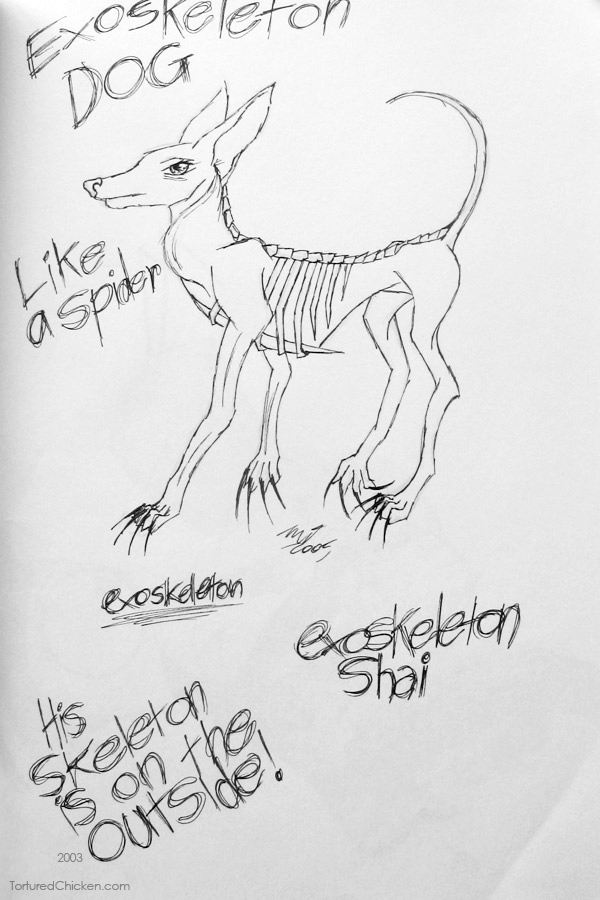 Exoskeleton
DOG
Like
a spider
exoskeleton
exoskeleton
Shai
His
skeleton
is on the
outside!
2003
TorturedChicken.com